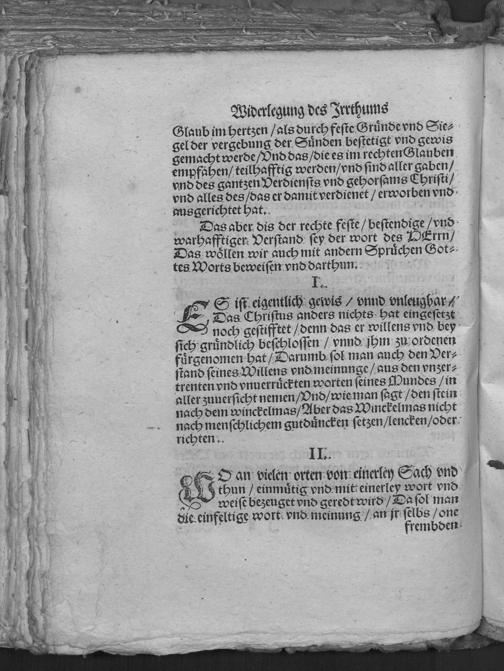 Widerlegung des Irrthums
Glaub im hertzen / als durch feste Gründe vnd Sie-
gel der vergebung der Sünden bestetigt vnd gewis
gemacht werde / Vnd das / die es im rechten Glauben
empfahen / teilhafftig werden / vnd sind aller gaben /
vnd des gantzen Verdiensts vnd gehorsams Christi /
vnd alles des / das er damit verdienet / erworben vnd
ausgerichtet hat.
Das aber dis der rechte feste / bestendige / vnd
warhafftiger Verstand sey der wort des HErrn /
Das wöllen wir auch mit andern Sprüchen Got-
tes Worts beweisen vnd darthun.
I.
ES ist eigentlich gewis / vnnd vnleugbar /
Das Christus anders nichts hat eingesetzt
noch gestifftet / denn das er willens vnd bey
sich gründlich beschlossen / vnnd jhm zu ordenen
fürgenomen hat / Darumb sol man auch den Ver-
stand seines Willens vnd meinunge / aus den vnzer-
trenten vnd vnuerrückten worten seines Mundes / in
aller zuuersicht nemen / Vnd / wie man sagt / den stein
nach dem winckelmas / Aber das Winckelmas nicht
nach menschlichem gutdüncken setzen / lencken / oder
richten.
II.
WO an vielen orten von einerley Sach vnd
thun / einmütig vnd mit einerley wort vnd
weise bezeuget vnd geredt wird / Da sol man
die einfeltige wort vnd meinung / an jr selbs / one
frembden